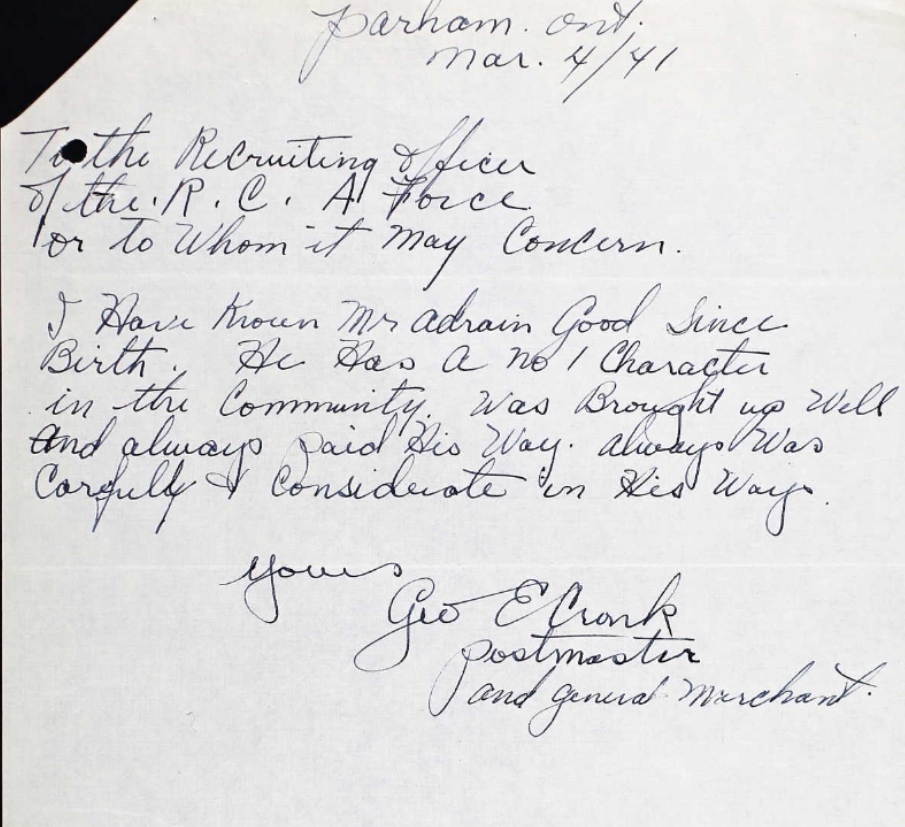 Parham. Ont.
Mar. 4/41
To the Recruiting Officer
of the. R. C. A Force
or to Whom it May Concern.
I Have Known Mr Adrain Good Since
Birth. He Has a no 1 Character
in the Community. Was Brought up Well
And always paid His Way. always Was
Carfully & Considerate in His Ways.
Yours
Geo E Cronk
postmaster
and general Merchant.